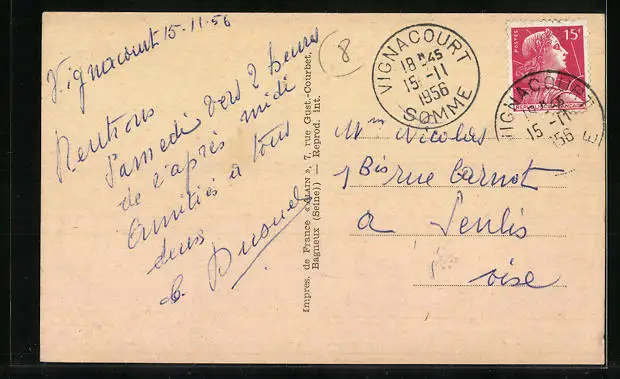 Vignacourt 15-11-56
Rentrons
Samedi vers 2 heures
de l'après midi
Amitiés à tous
deux
8
Impres. de France « ALAIN », 7, rue Gust.-Courbet,
Bagneux (Seine) — Reprod. int.
VIGNACOURT
18H45
15-11
1956
SOMME
POSTES
15F
VIGNACOURT
15-11
1956
Mme Nicolas
1 Bis rue Carnot
a Senlis
oise